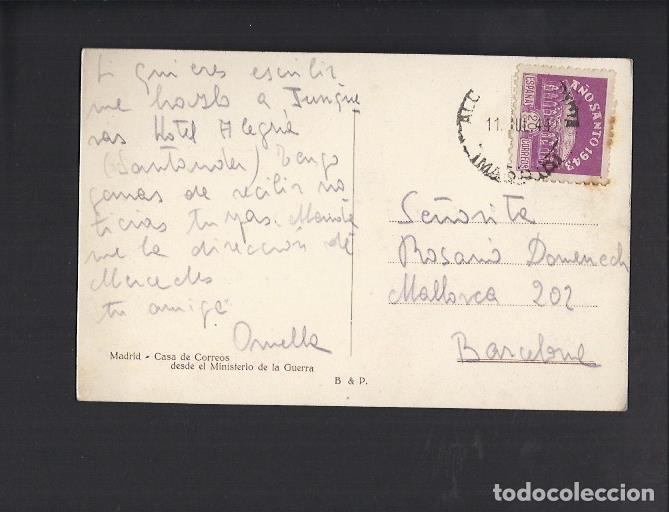 Si quieres escribir
me hazlo a Junque
ras Hotel Alegria
(Santander) Tengo
ganas de recibir no
ticias tuyas. Manda
me la dirección de
Mercedes
tu amiga
Ornella
Madrid - Casa de Correos
desde el Ministerio de la Guerra
B & P.
AÑO SANTO 1943
ESPAÑA
CORREOS
11
Señorita
Rosario Domenech
Mallorca 202
Barcelona
todocoleccion